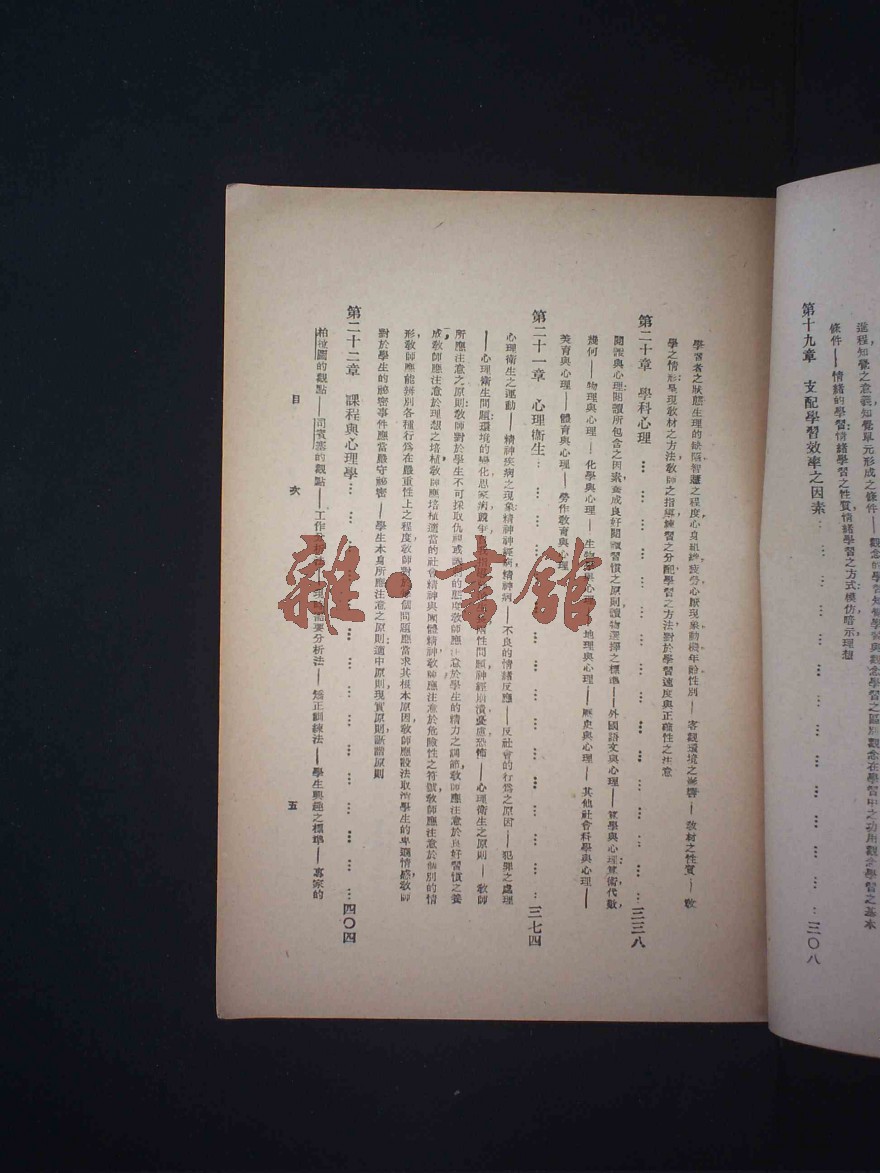 進程,知覺之意義,知覺單元形成之條件——觀念的學習:知覺學習與觀念學習之區別,觀念在學習中之功用,觀念學習之基本
條件——情緒的學習:情緒學習之性質,情緒學習之方式,模仿,暗示,理想
第十九章 支配學習效率之因素……三〇八
學習者之狀態:生理的缺陷,智慧之程度,心身組織,疲勞,心厭現象,動機,年齡,性別——客觀環境之影響——教材之性質——教
學之情形:呈現教材之方法,教師之指導,練習之分配,學習之方法,對於學習速度與正確性之注意
第二十章 學科心理……三三八
閱讀與心理:閱讀所包含之因素,養成良好閱讀習慣之原則,讀物選擇之標準——外國語文與心理——算學與心理:算術,代數,
幾何——物理與心理——化學與心理——生物學與心理——地理與心理——歷史與心理——其他社會科學與心理——
美育與心理——體育與心理——勞作教育與心理
第二十一章 心理衞生……三七四
心理衞生之運動——精神疾病之現象:精神神經病,精神病——不良的情緒反應——反社會的行爲之原因——犯罪之處理
——心理衞生問題:環境的變化,思家病,兩性問題,神經崩潰,憂慮,恐怖——心理衞生之原則——教師
所應注意之原則:教師對於學生不可採取仇視或諷刺的態度,教師應注意於學生的精力之調節,教師應注意於良好習慣之養
成,教師應注意於理想之培植,教師應培植適當的社會精神與團體精神,教師應注意於危險性之符號,教師應注意於個別的情
形,教師應能辨別各種行爲在嚴重性上之程度,教師對於每個問題應當求其根本原因,教師應設法取消學生的卑遜情感,教師
對於學生的祕密事件應當嚴守祕密——學生本身所應注意之原則:適中原則,現實原則,詼諧原則
第二十二章 課程與心理學……四〇四
柏拉圖的觀點——司賓塞的觀點——工作分析法——現時需要分析法——矯正訓練法——學生興趣之標準——專家的
目 次 五
雜·書館